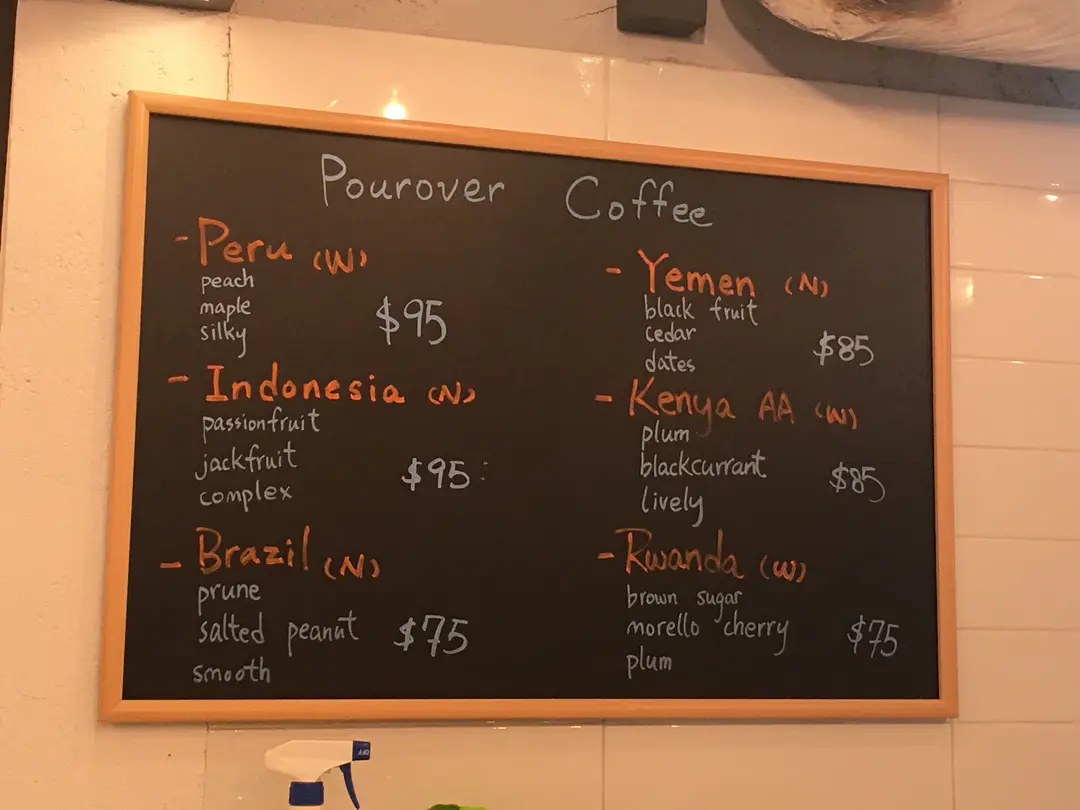 Pourover Coffee
- Peru (W)
peach
maple
silky
$95
- Indonesia (N)
passionfruit
jackfruit
complex
$95
- Brazil (N)
prune
salted peanut
smooth
$75
- Yemen (N)
black fruit
cedar
dates
$85
- Kenya AA (W)
plum
blackcurrant
lively
$85
- Rwanda (W)
brown sugar
morello cherry
plum
$75
OFF